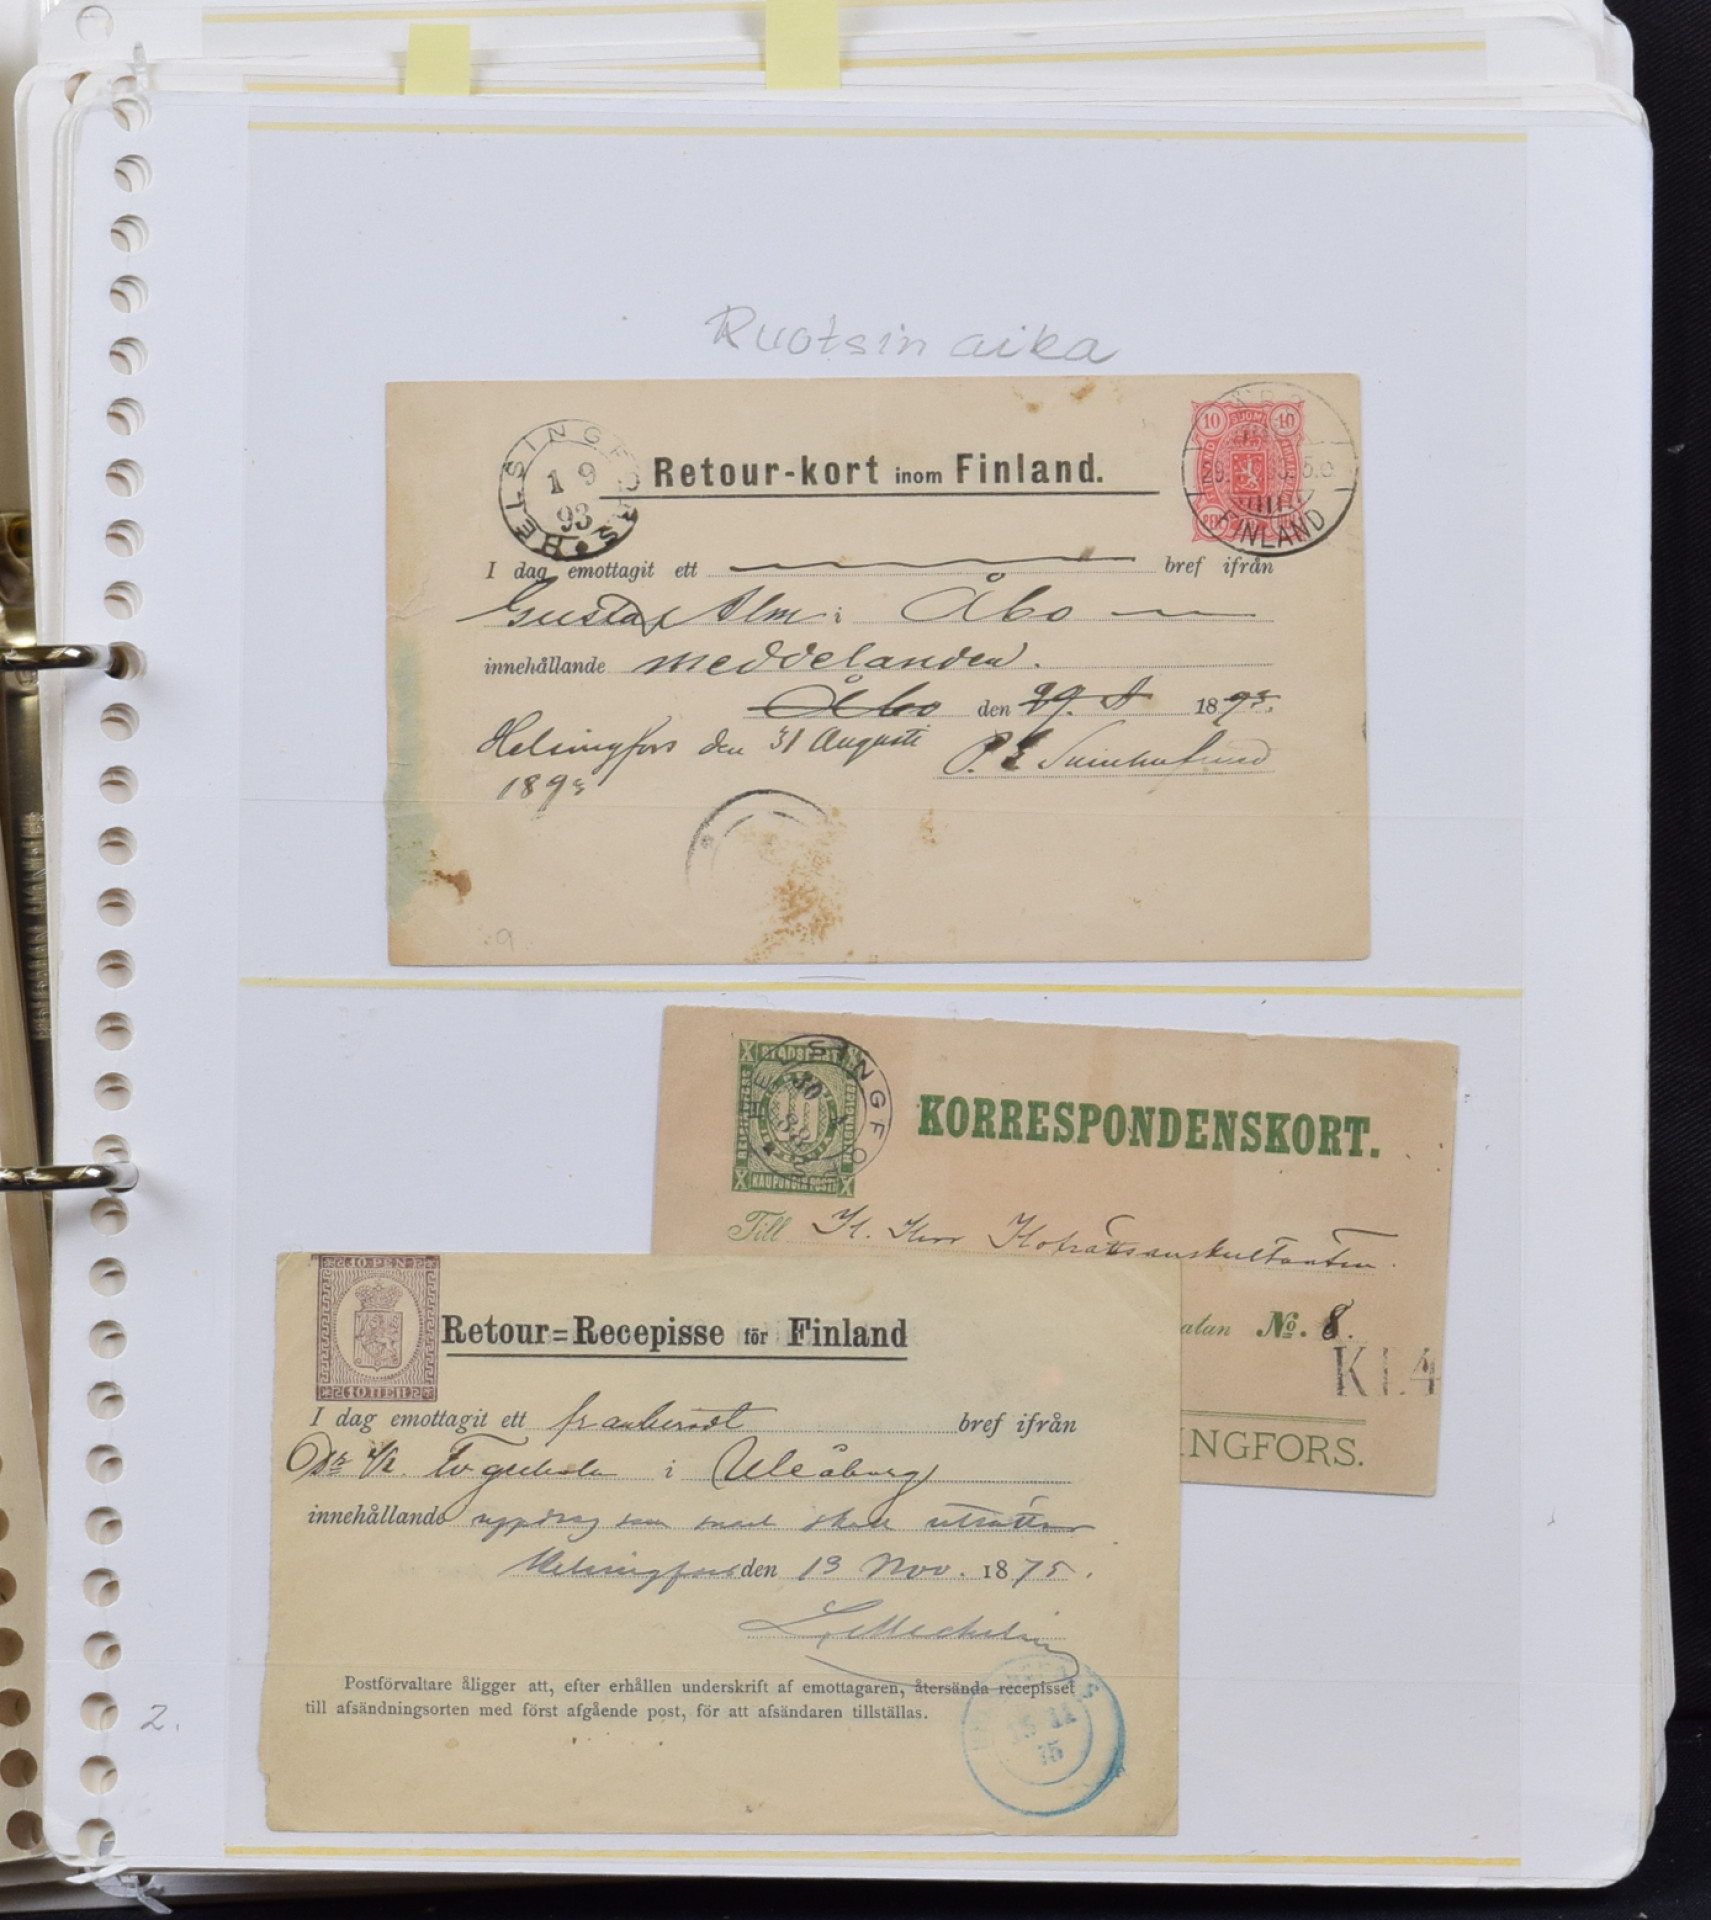 Ruotsin aika
HELSINGFORS
1 9
93
Retour-kort inom Finland.
10 SUOMI 10
29. 5.e.
FINLAND
I dag emottagit ett bref ifrån
Gustaf Alm i Åbo
innehållande meddelanden.
Åbo den 29. 8 1893.
Helsingfors den 31 Augusti
1893
9
HELSINGFORS
STADSPOST
10
KAUPUNGIN POSTI
KORRESPONDENSKORT.
Till H. Herr Hofrättsauskultanten
atan No. 8.
K 1.4
INGFORS.
10 PEN
10 ПЕН
Retour=Recepisse för Finland
I dag emottagit ett frankeradt bref ifrån
i Uleåborg
innehållande uppdrag som skall uträttas
Helsingfors den 13 Nov. 1875.
L Mechelin
Postförvaltare åligger att, efter erhållen underskrift af emottagaren, återsända recepisset
till afsändningsorten med först afgående post, för att afsändaren tillställas.
75
2.